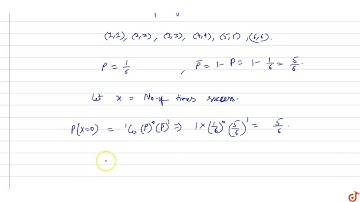 (1,1), (2,2), (3,3), (4,4), (5,5), (6,6).
P = 1/6 , P̄ = 1 - P = 1 - 1/6 = 5/6.
let x = No. of times success.
P(x=0) = ¹C₀ (P)⁰ (P̄)¹ ⇒ 1 × (1/6)⁰ (5/6)¹ = 5/6.